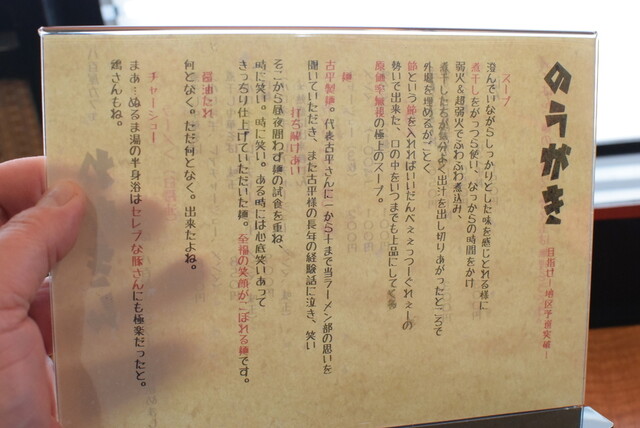 のうがき
目指せ！地区予選突破！
スープ
澄んでいながらしっかりとした味を感じとれる様に
煮干しをがっつり使い、なっがらの時間をかけ
弱火&超弱火でふわふわ煮込み、
煮干したちが気分よく出汁を出し切りあがったところで
外堀を埋めるがごとく
節という節を入れればいいだんべぇぇっつーぐれぇーの
勢いで出来た、口の中をいつまでも上品にしてくる
原価率無視の極上のスープ。
麺
古平製麺。代表古平さんに一から十まで当ラーメン部の思いを
打ち解けあい
聞いていただき、また古平様の長年の経験話に泣き、笑い
そこから昼夜問わず麺の試食を重ね、
時に笑い。時に笑い。ある時には心底笑いあって
きっちり仕上げていただいた麺。至福の笑顔がこぼれる麺です。
醤油たれ
何となく。ただ何となく。出来たよね。
チャーシュー
まぁ…ぬるま湯の半身浴はセレブな豚さんにも極楽だったと。
鶏さんもね。